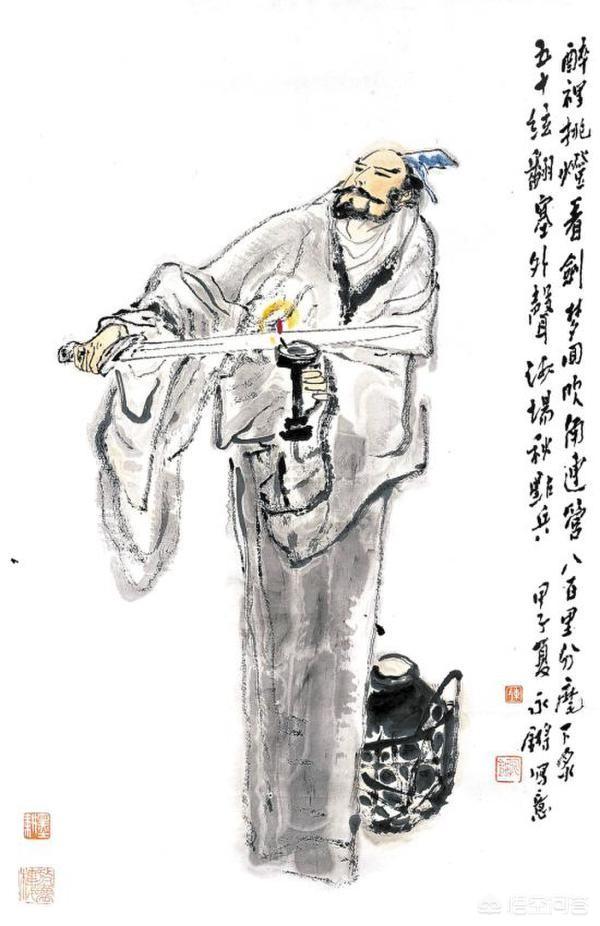 醉裡挑燈看劍 梦回吹角連營 八百里分麾下炙
五十絃翻塞外聲 沙場秋點兵 甲子夏 永鏘写意
悟空问答